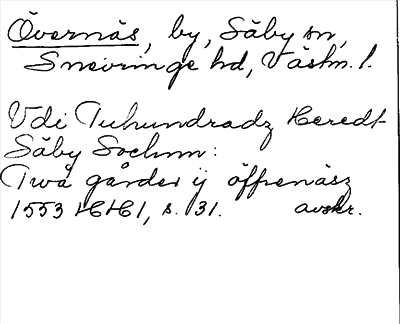 Övernäs, by, Säby sn,
Snevringe hd, Västm. l.
Vdi Tuhundradz Heredt
Säby Sochnn:
Twå gårder ij öffrenäsz
1553 HH1, s. 31. avskr.